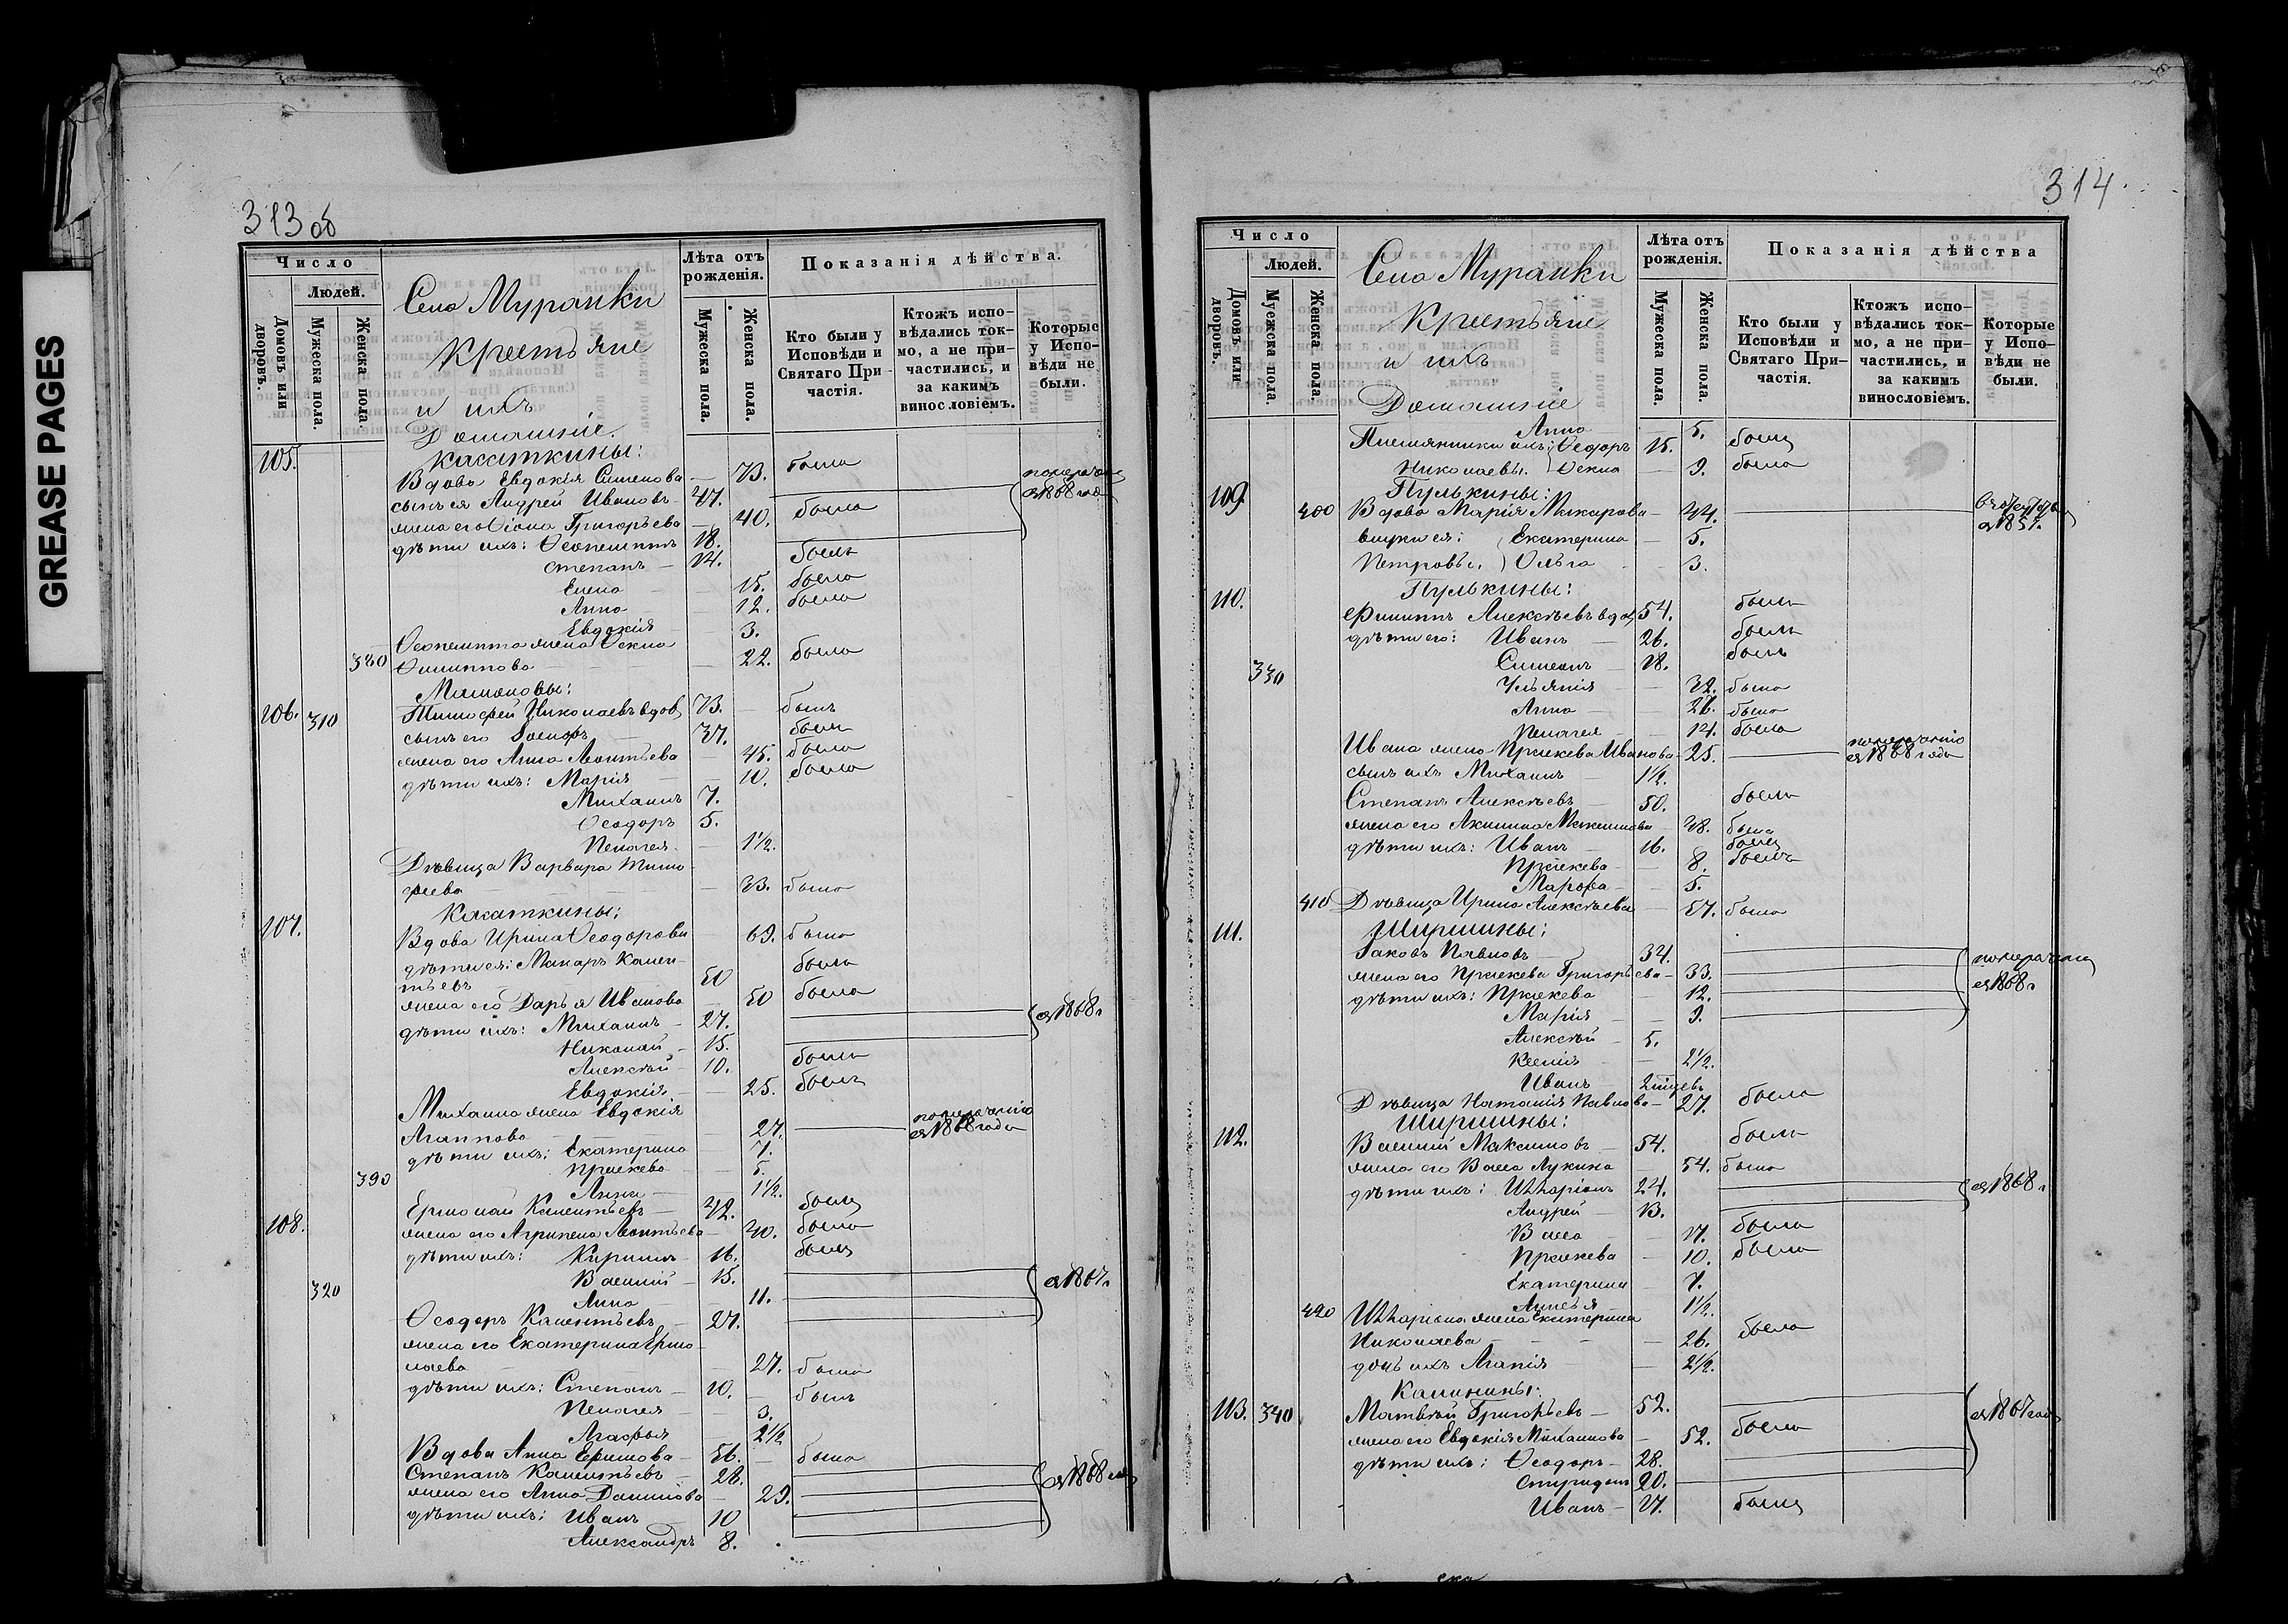 GREASE PAGES
313 об
Число
Людей.
Домовъ или дворовъ.
Мужеска пола.
Женска пола.
Село Муранки
Крестьяне
и ихъ
Домашніе.
Лѣта отъ рожденія.
Мужеска пола.
Женска пола.
Показанія дѣйства.
Кто были у Исповѣди и Святаго Причастія.
Ктожъ исповѣдались токмо, а не причастились, и за какимъ винословіемъ.
Которые у Исповѣди не были.
105. Касаткины:
Вдова Евдокія Симеонова — 73. была
сынъ ея Андрей Ивановъ — 47.
жена его Григорьева — 40. была
дѣти ихъ: Ѳеопемптъ 18.
Степанъ — 14. былъ
Елена — 15. была
Анна — 12. была
Евдокія — 3.
Ѳеопемпта жена Ѳекла
380 Филиппова — 22. была
106. 310 Тимофей Николаевъ вдов 73. — былъ
сынъ его 37. былъ
жена его Анна Леонтьева — 45. была
дѣти ихъ: Марія — 10. была
Михаилъ 7.
Ѳеодоръ 5.
Пелагея — 1½.
Дѣвица Варвара Тимо-
феева — 33. была
107. Касаткины:
Вдова Ирина Ѳеодорова — 69. была
дѣти ея: Макаръ Кален-
тьевъ 50 былъ
жена его Дарья Иванова — 50 была
дѣти ихъ: Михаилъ — 27. съ 1868 г
Николай — 15.
Алексѣй — 10. былъ
Евдокія — 25. была
Михаила жена Евдокія
Агаппова — 27. съ 1868 года
дѣти ихъ: Екатерина 7.
390 Праскева — 5.
Анна — 1½.
108. Ермолай Калентьевъ — 42. былъ
жена его Агрипена Леонтьева — 40. была
дѣти ихъ: Кирилъ — 16. былъ
320 Василій — 15.
Анна — 11. съ 1867 г
Ѳеодоръ Калентьевъ — 27.
жена его Екатерина Ермо-
лаева — 27. была
дѣти ихъ: Степанъ — 10. — былъ
Пелагея — 3.
Агафья 2½
Вдова Анна Ефимова — 56. — была
Степанъ Калентьевъ — 28. съ 1868
жена его Анна Данилова — 29.
дѣти ихъ: Иванъ — 10
Александръ 8.
314
Число
Людей.
Домовъ или дворовъ.
Мужеска пола.
Женска пола.
Село Муранки
Крестьяне
и ихъ
Домашніе
Лѣта отъ рожденія.
Мужеска пола.
Женска пола.
Показанія дѣйства
Кто были у Исповѣди и Святаго Причастія.
Ктожъ исповѣдались токмо, а не причастились, и за какимъ винословіемъ.
Которые у Исповѣди не были.
Анна — 5.
Племянники ихъ: Ѳеодоръ 15. былъ
Николаевы. Ѳекла — 9. была
109. Пулькины:
400 Вдова Марія Макарова — 44. съ 1857.
внуки ея: Екатерина — 5.
Петровы. Ольга — 3.
110. Пулькины:
Филиппъ Алексѣевъ вдов 54. былъ
дѣти его: Иванъ — 26. былъ
330 Симеонъ — 18. былъ
Ульянія — 32. была
Анна — 26. была
Пелагея — 14. была
Ивана жена Праскева Иванова — 25. съ 1868 года
сынъ ихъ Михаилъ — 1½.
Степанъ Алексѣевъ — 50. былъ
жена его Акилина Максимова — 48. была
дѣти ихъ: Иванъ — 16. былъ
Праскева — 8. была
Марфа — 5.
410 Дѣвица Ирина Алексѣева — 57. была
111. Ширшины:
Яковъ Павловъ — 34.
жена его Праскева Григорьева — 33. съ 1868 г
дѣти ихъ: Праскева — 12.
Марія — 9.
Алексѣй — 5.
Ксенія — 2½.
Иванъ — 2 мѣсяцевъ
Дѣвица Наталія Павлова — 27. была
112. Ширшины:
Василій Максимовъ — 54. былъ
жена его Васса Лукина — 54. была
дѣти ихъ: Илларіонъ 24. съ 1868 г
Андрей — 13.
Васса — 17. была
Праскева — 10. была
Екатерина — 7.
Анисья — 1½.
420 Илларіона жена Екатерина
Николаева — 26. была
дочь ихъ Агапія — 2½.
Калинины:
113. 340 Матвѣй Григорьевъ — 52. съ 1867 года
жена его Евдокія Михаилова — 52. была
дѣти ихъ: Ѳеодоръ — 28.
Спиридонъ 20.
Иванъ — 17. былъ